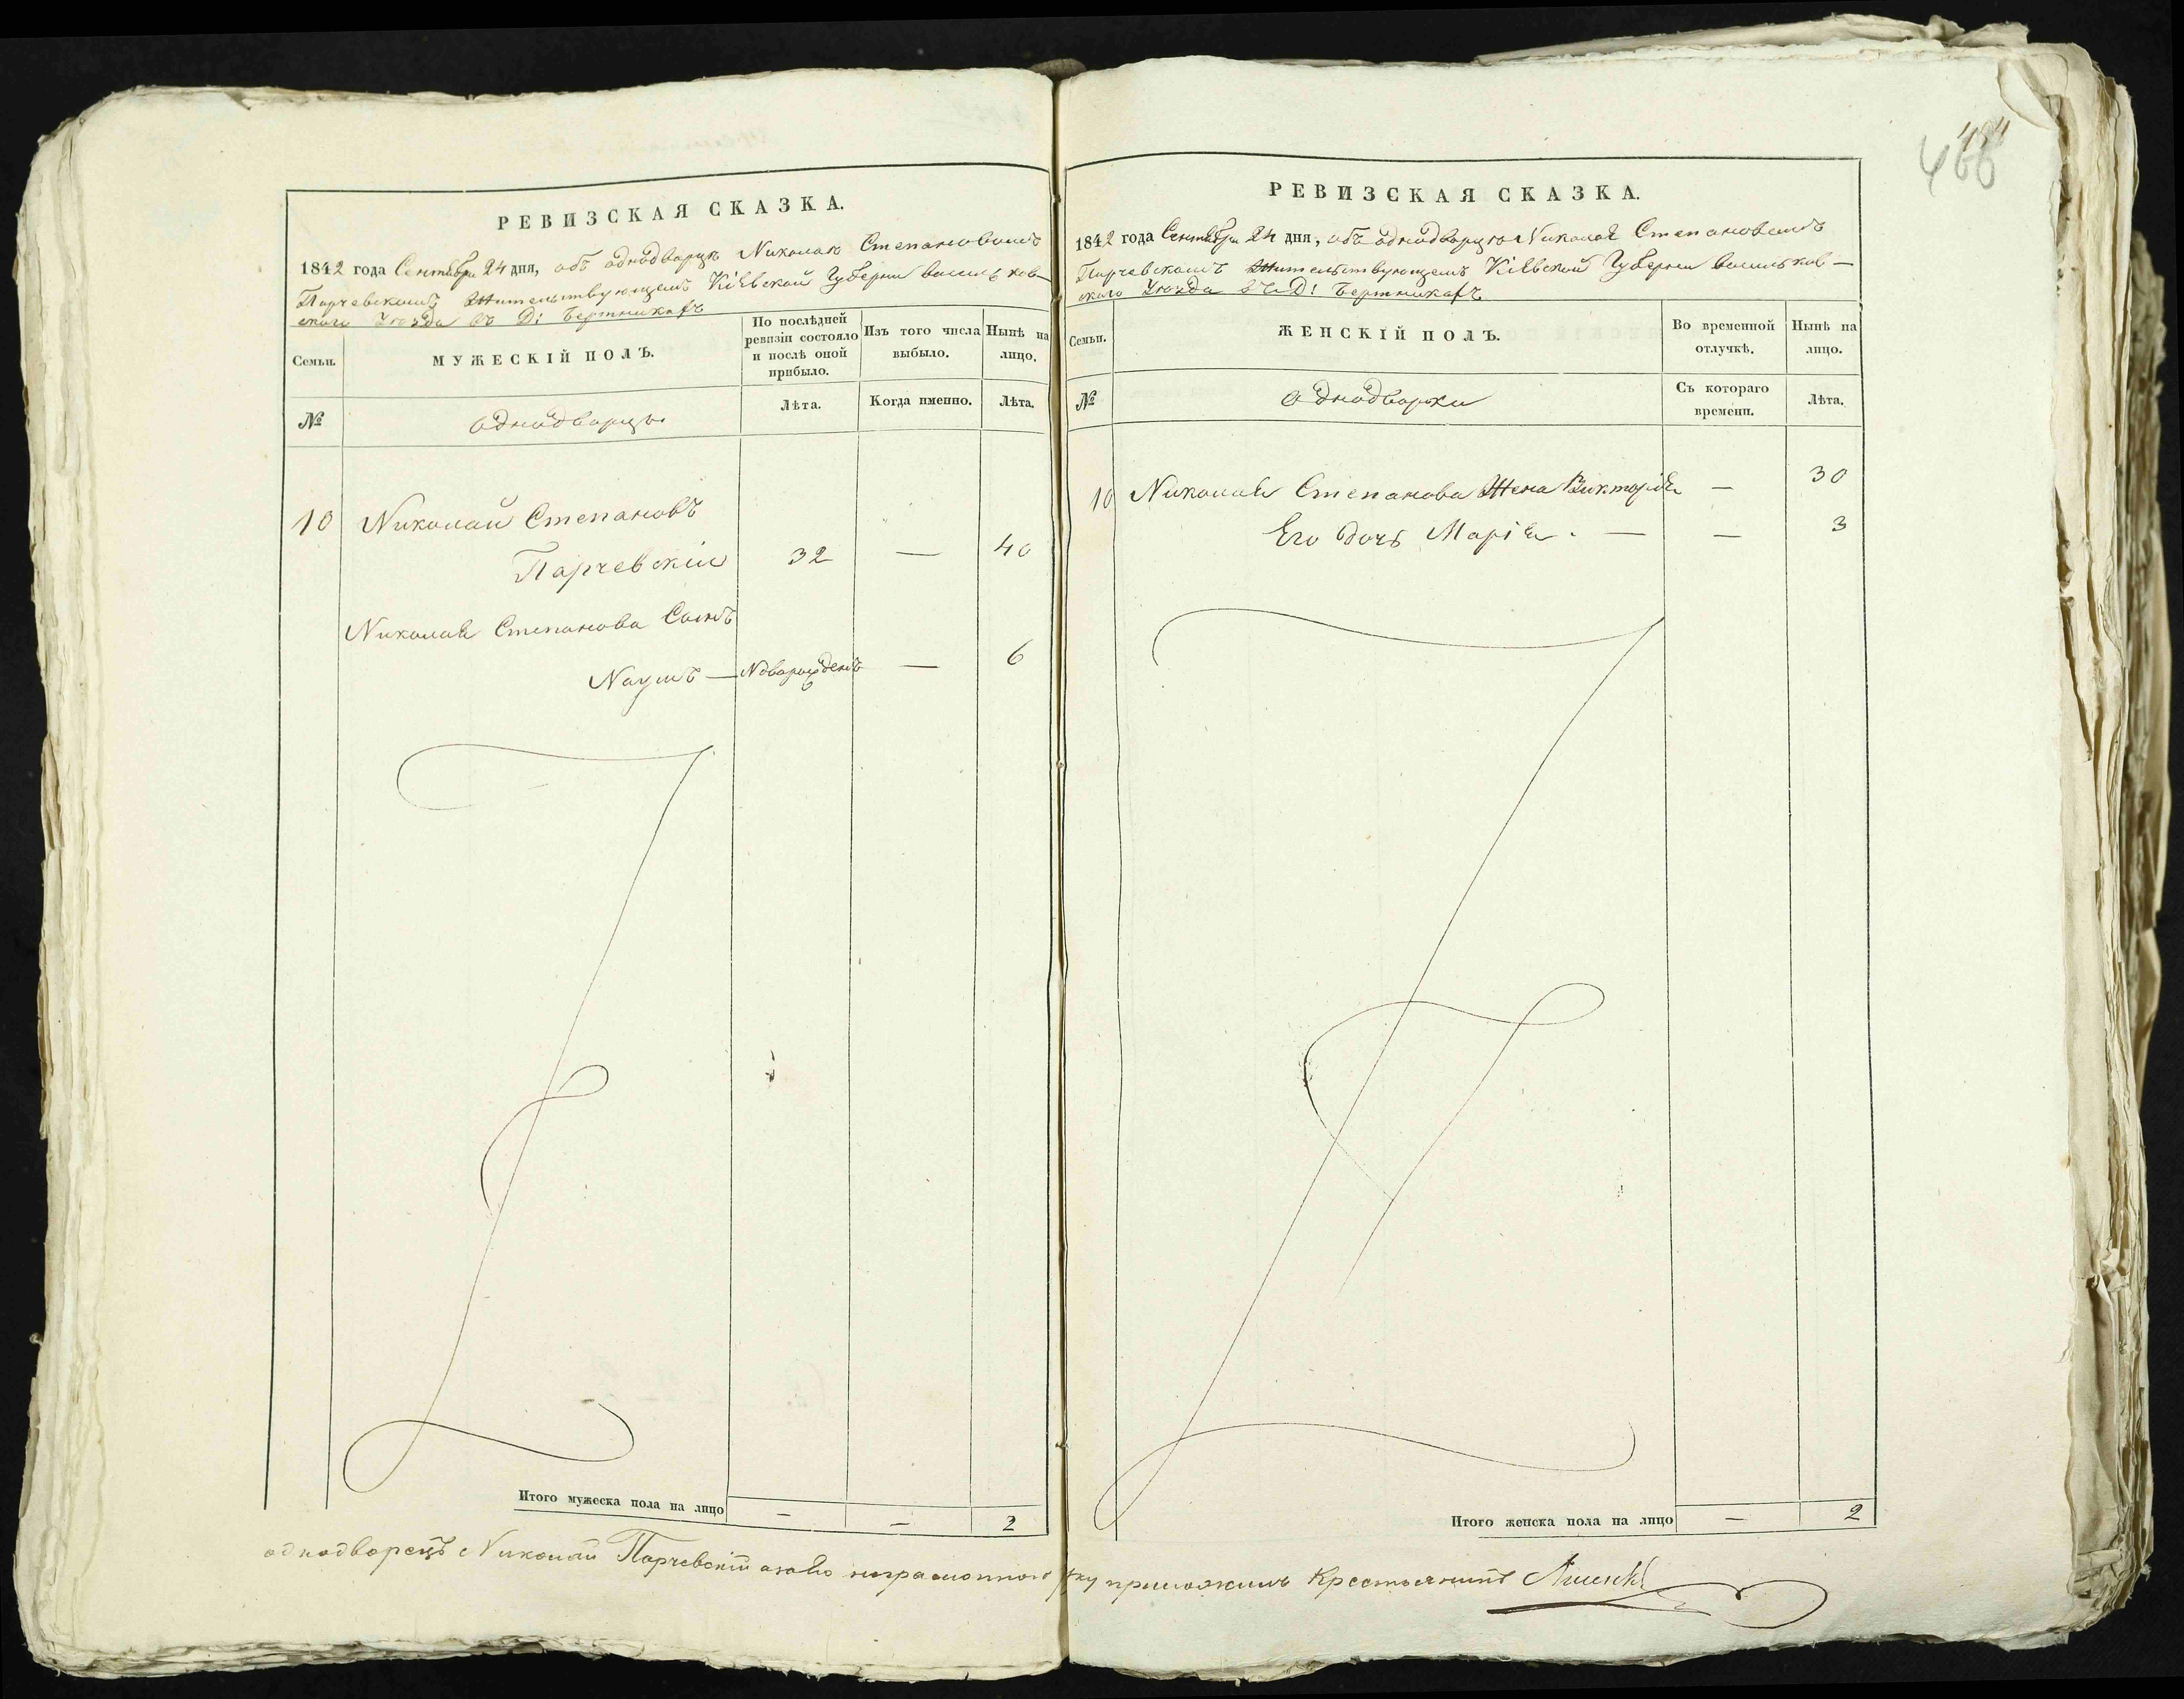 РЕВИЗСКАЯ СКАЗКА.
1842 года Сентября 24 дня, объ однодворцѣ Николаѣ Степановомъ
Парчевскомъ Жительствующемъ Кіевской Губерніи Васильков-
скаго Уѣзда въ Д: Бертникахъ
Семьи.
МУЖЕСКІЙ ПОЛЪ.
По послѣдней
ревизіи состояло
и послѣ оной
прибыло.
Изъ того числа
выбыло.
Нынѣ на
лицо.
№
однодворцы
Лѣта.
Когда именно.
Лѣта.
10 Николай Степановъ
Парчевскій 32 — 40
Николая Степанова Сынъ
Наумъ — Новорожденъ — 6
Итого мужеска пола на лицо — — 2
РЕВИЗСКАЯ СКАЗКА.
1842 года Сентября 24 дня, объ однодворцѣ Николаѣ Степановомъ
Парчевскомъ Жительствующемъ Кіевской Губерніи Васильков-
скаго Уѣзда въ Д: Бертникахъ
Семьи.
ЖЕНСКІЙ ПОЛЪ.
Во временной
отлучкѣ.
Нынѣ на
лицо.
№
однодворки
Съ котораго
времени.
Лѣта.
10 Николая Степанова Жена Викторія — 30
Его дочь Марія. — — 3
Итого женска пола на лицо — 2
однодворецъ Николай Парчевскій а за его неграмотного руку приложилъ Крестьянинъ